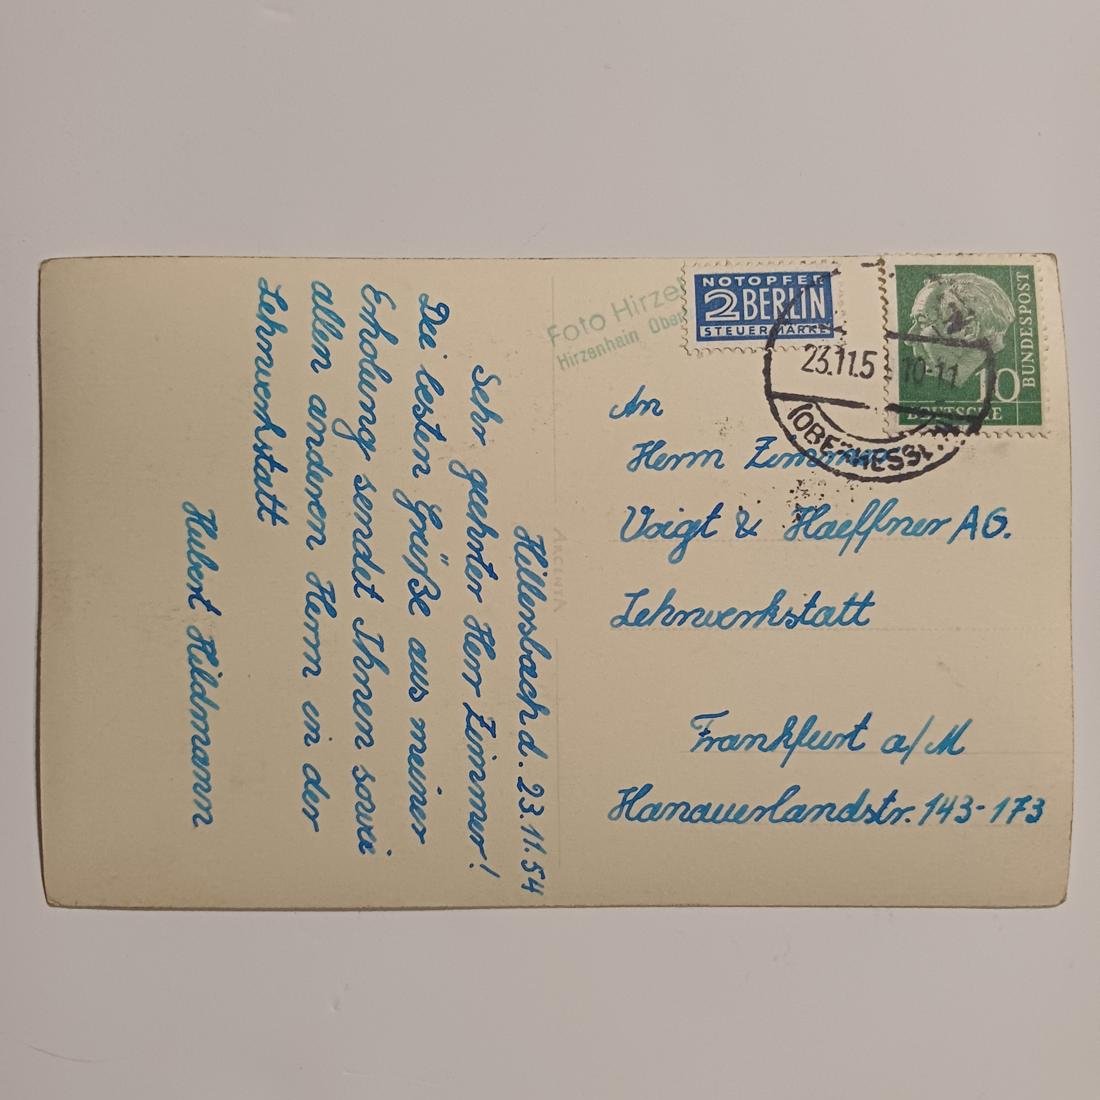 Hillersbach d. 23.11.54
Sehr geehrter Herr Zimmer!
Die besten Grüße aus meiner
Erholung sendet Ihnen sowie
allen anderen Herrn in der
Lehrwerkstatt
Hubert Hildmann
ARGENTA
Foto Hirze
Hirzenhain Ober
NOTOPFER
2 BERLIN
STEUERMARKE
23.11.5 10-11
(OBERHESS)
10
DEUTSCHE
BUNDESPOST
An
Herrn Zimmer
Voigt & Haeffner AG.
Lehrwerkstatt
Frankfurt a/M
Hanauerlandstr. 143-173